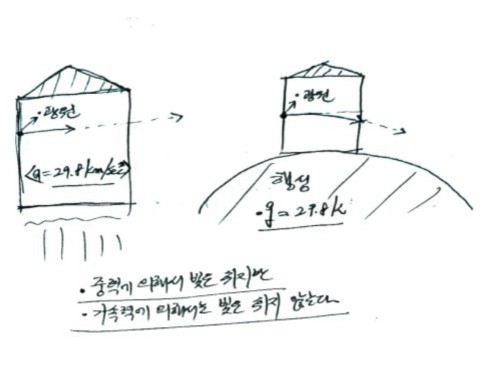 광원
<a = 29.8 km/sec²>
광원
행성
·g = 29.8 k
· 중력에 의해서 빛은 휘지만
· 가속력에 의해서는 빛은 휘지 않는다.